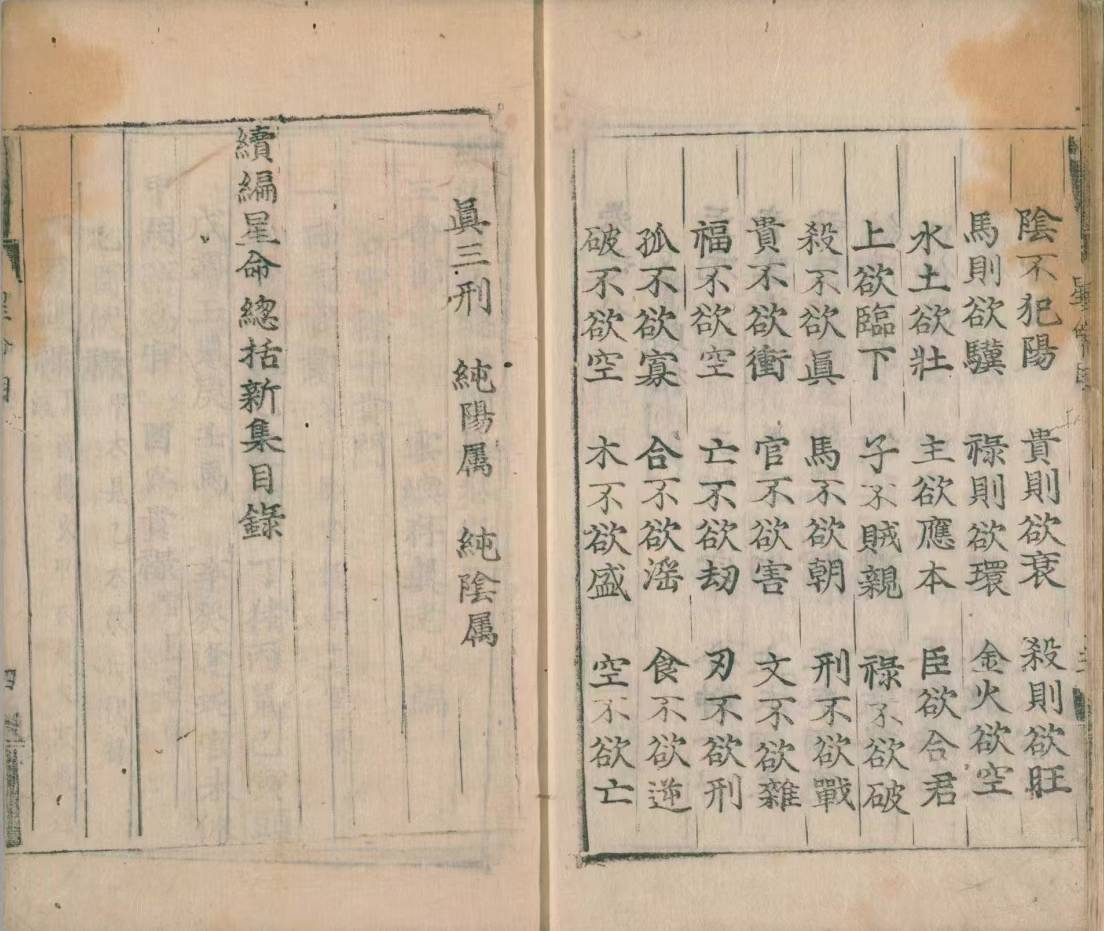 陰不犯陽　貴則欲衰　殺則欲旺
馬則欲驥　祿則欲環　金火欲空
水土欲壯　主欲應本　臣欲合君
上欲臨下　子不賊親　祿不欲破
殺不欲眞　馬不欲朝　刑不欲戰
貴不欲衝　官不欲害　文不欲雜
福不欲空　亡不欲刧　刃不欲刑
孤不欲寡　合不欲滛　食不欲逆
破不欲空　木不欲盛　空不欲亡
眞三刑　純陽属　純陰属
續編星命總括新集目錄
四